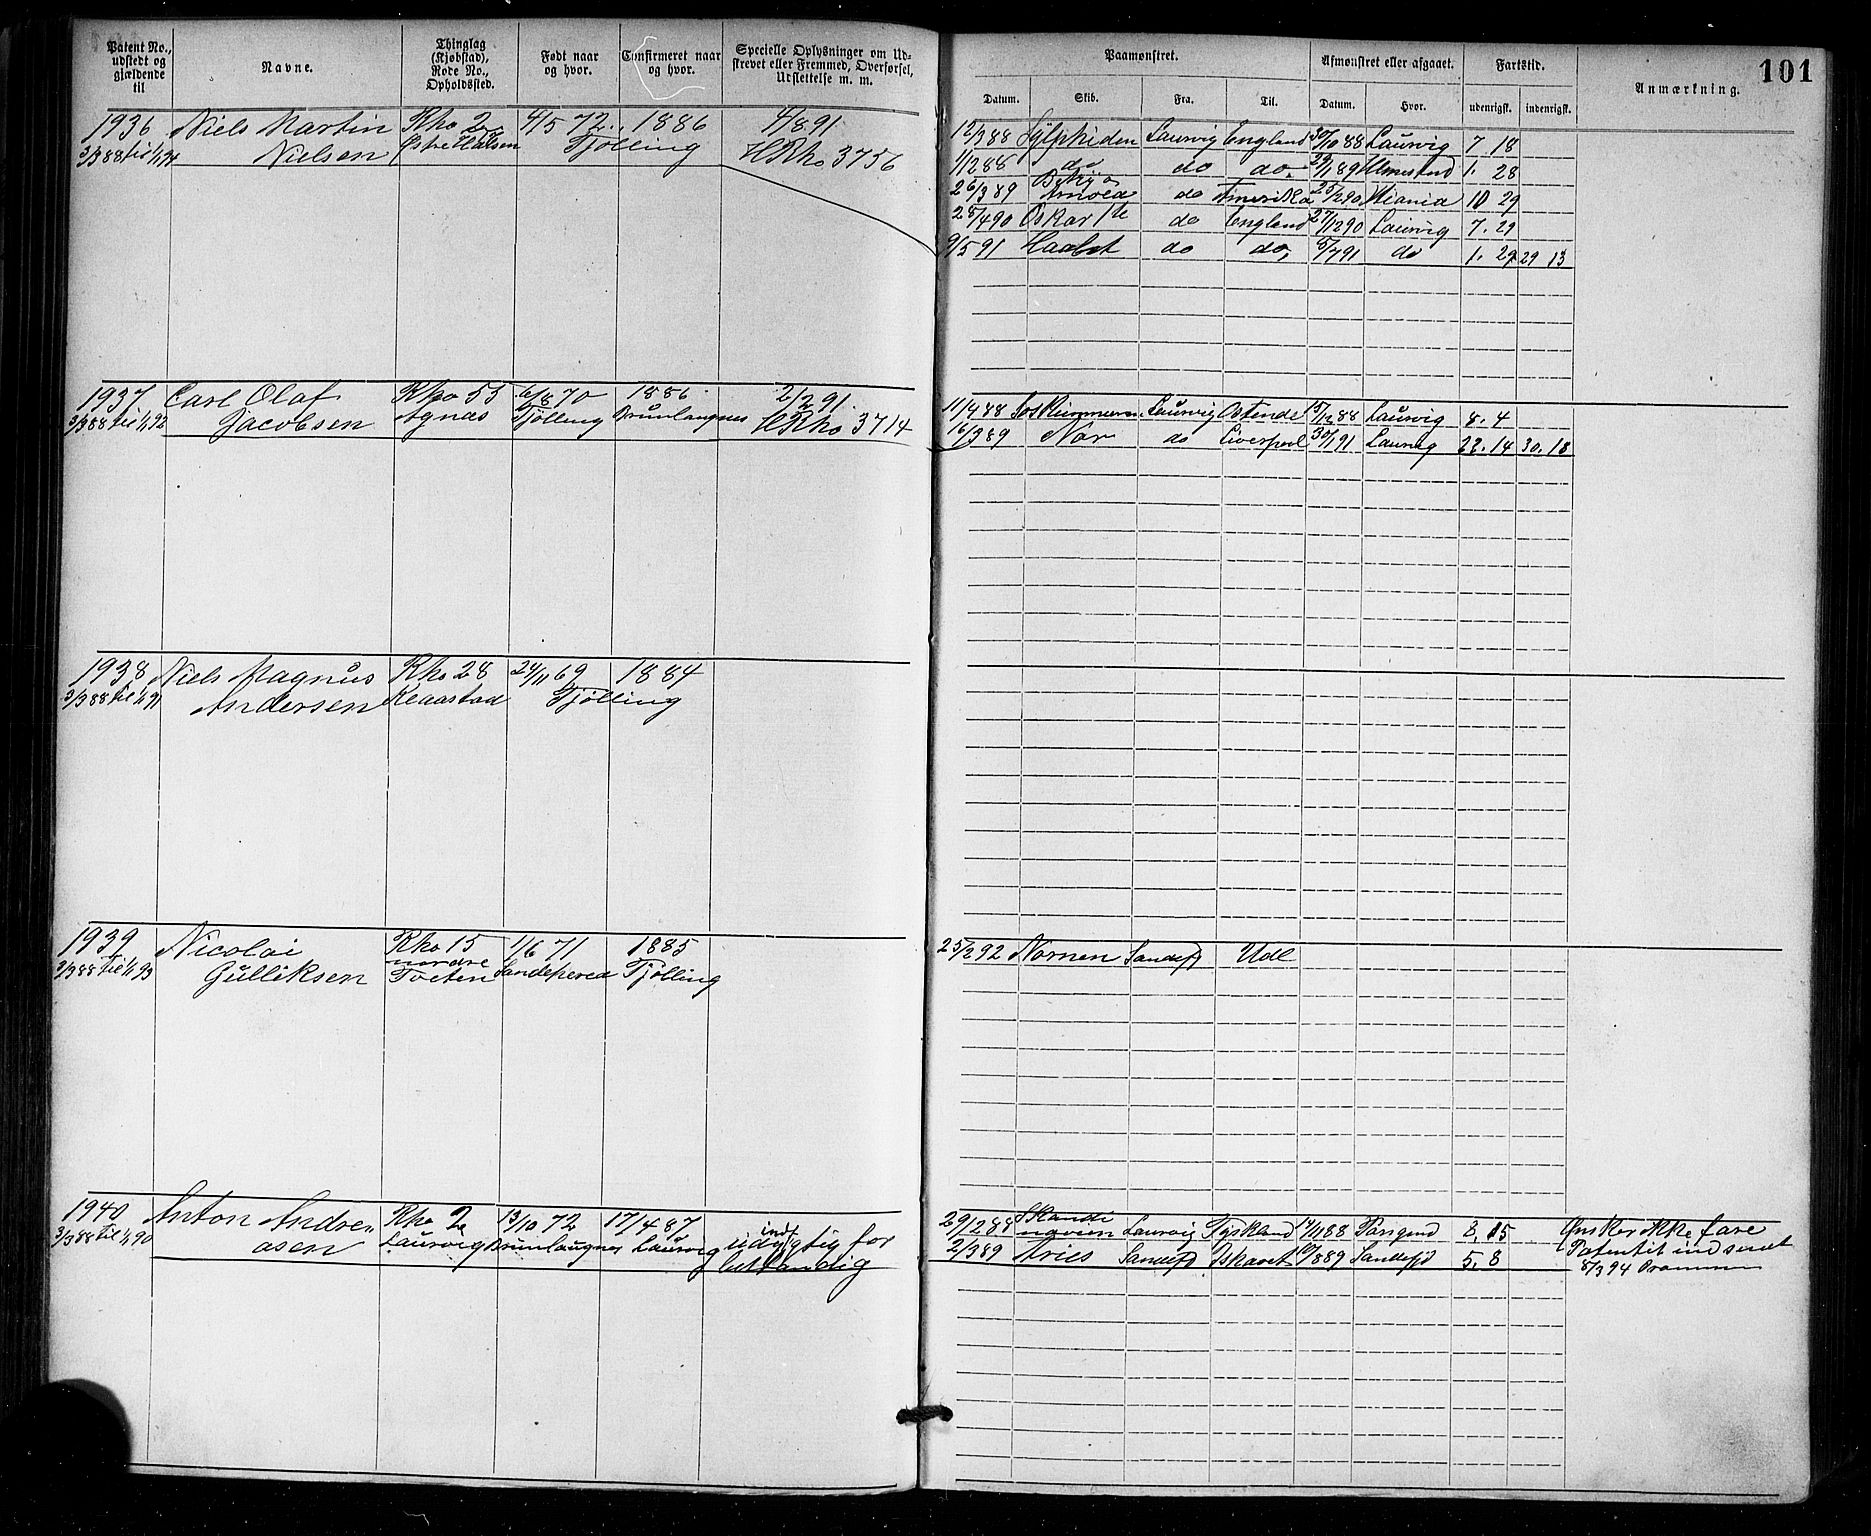 Patent No., udstedt og gjældende til
Navne.
Thinglag (Kjøbstad), Rode No., Opholdssted.
Født naar og hvor.
Confirmeret naar og hvor.
Specielle Oplysninger om Udstrevet eller Fremmed, Overførsel, Udslettelse m. m.
Paamønstret.
Afmønstret eller afgaaet.
Fartstid.
Anmærkning.
101
Datum. Skib. Fra. Til. Datum. Hvor. udenrigsk. indenrigsk.
1936 Niels Martin Rno 2 4/5 72 1886 4/8 91
3/3 88 til 1/1 94 Nielsen Østre Halsen Tjølling HRno 3756
12/3 88 Sylphiden Laurvig England 30/10 88 Laurvig 7 18
1/12 88 do do do. 29/1 89 1. 28
26/3 89 do Amerika 25/2 90 10 29
28/4 90 Oskar do England 27/12 90 Laurvig 7. 29
9/5 91 Haabet do do, 8/7 91 do 1. 29 29 13
1937 Carl Olaf Rno 55 6/8 70 1886 2/2 91.
3/3 88 til 1/1 92 Jacobsen Agnæs Tjølling Brunlaugnes HRno 3714
11/4 88 Laurvig Ostende 15/12 88 Laurvig 8. 4
16/3 89 Nor do Liverpool 30/1 91 Laurvig 22. 14 30. 18
1938 Niels Magnus Rno 28 24/11 69 1884
3/3 88 til 1/1 91 Andersen Klaastad Tjølling
1939 Nicolai Rno 15 1/6 71 1885
3/3 88 til 1/1 93 Gulliksen nordre Tveten Sandeherred Tjølling
25/2 92 Nornen Sandefj Udl
1940 Anton Andre- Rno 2 13/10 72 17/4 87 indt
3/3 88 til 1/1 90 asen Laurvig Brunlaugnes Laurvig udygtig for bestandig
29/2 88 Skandinavien Laurvig Tyskland 14/11 88 8. 15 Ønsker ikke fare
2/3 89 Aries Sandefj Ishavet 10/8 89 Sandefjd 5. 8 Patentet indsendt
8/3 94 Drammen